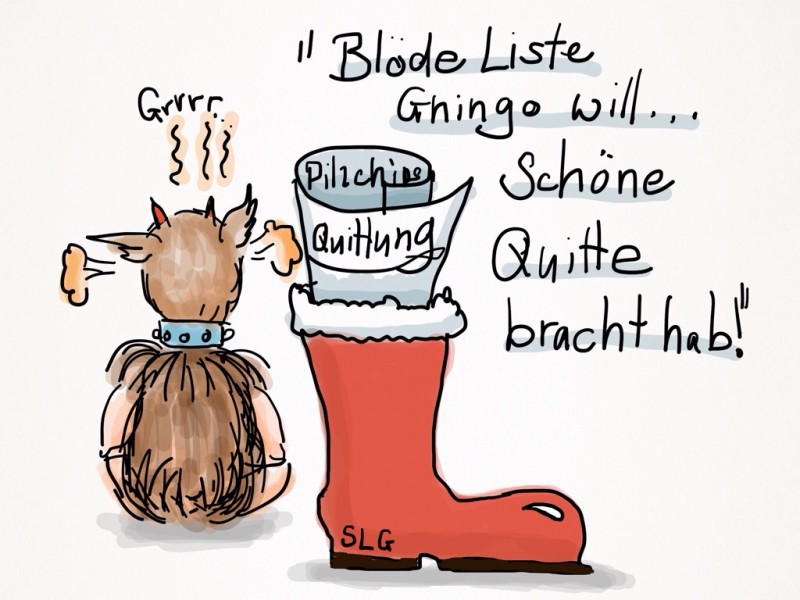 Grrrr..
"Blöde Liste
Gningo will...
Schöne
Quitte
bracht hab!"
Pilzchips
Quittung
SLG